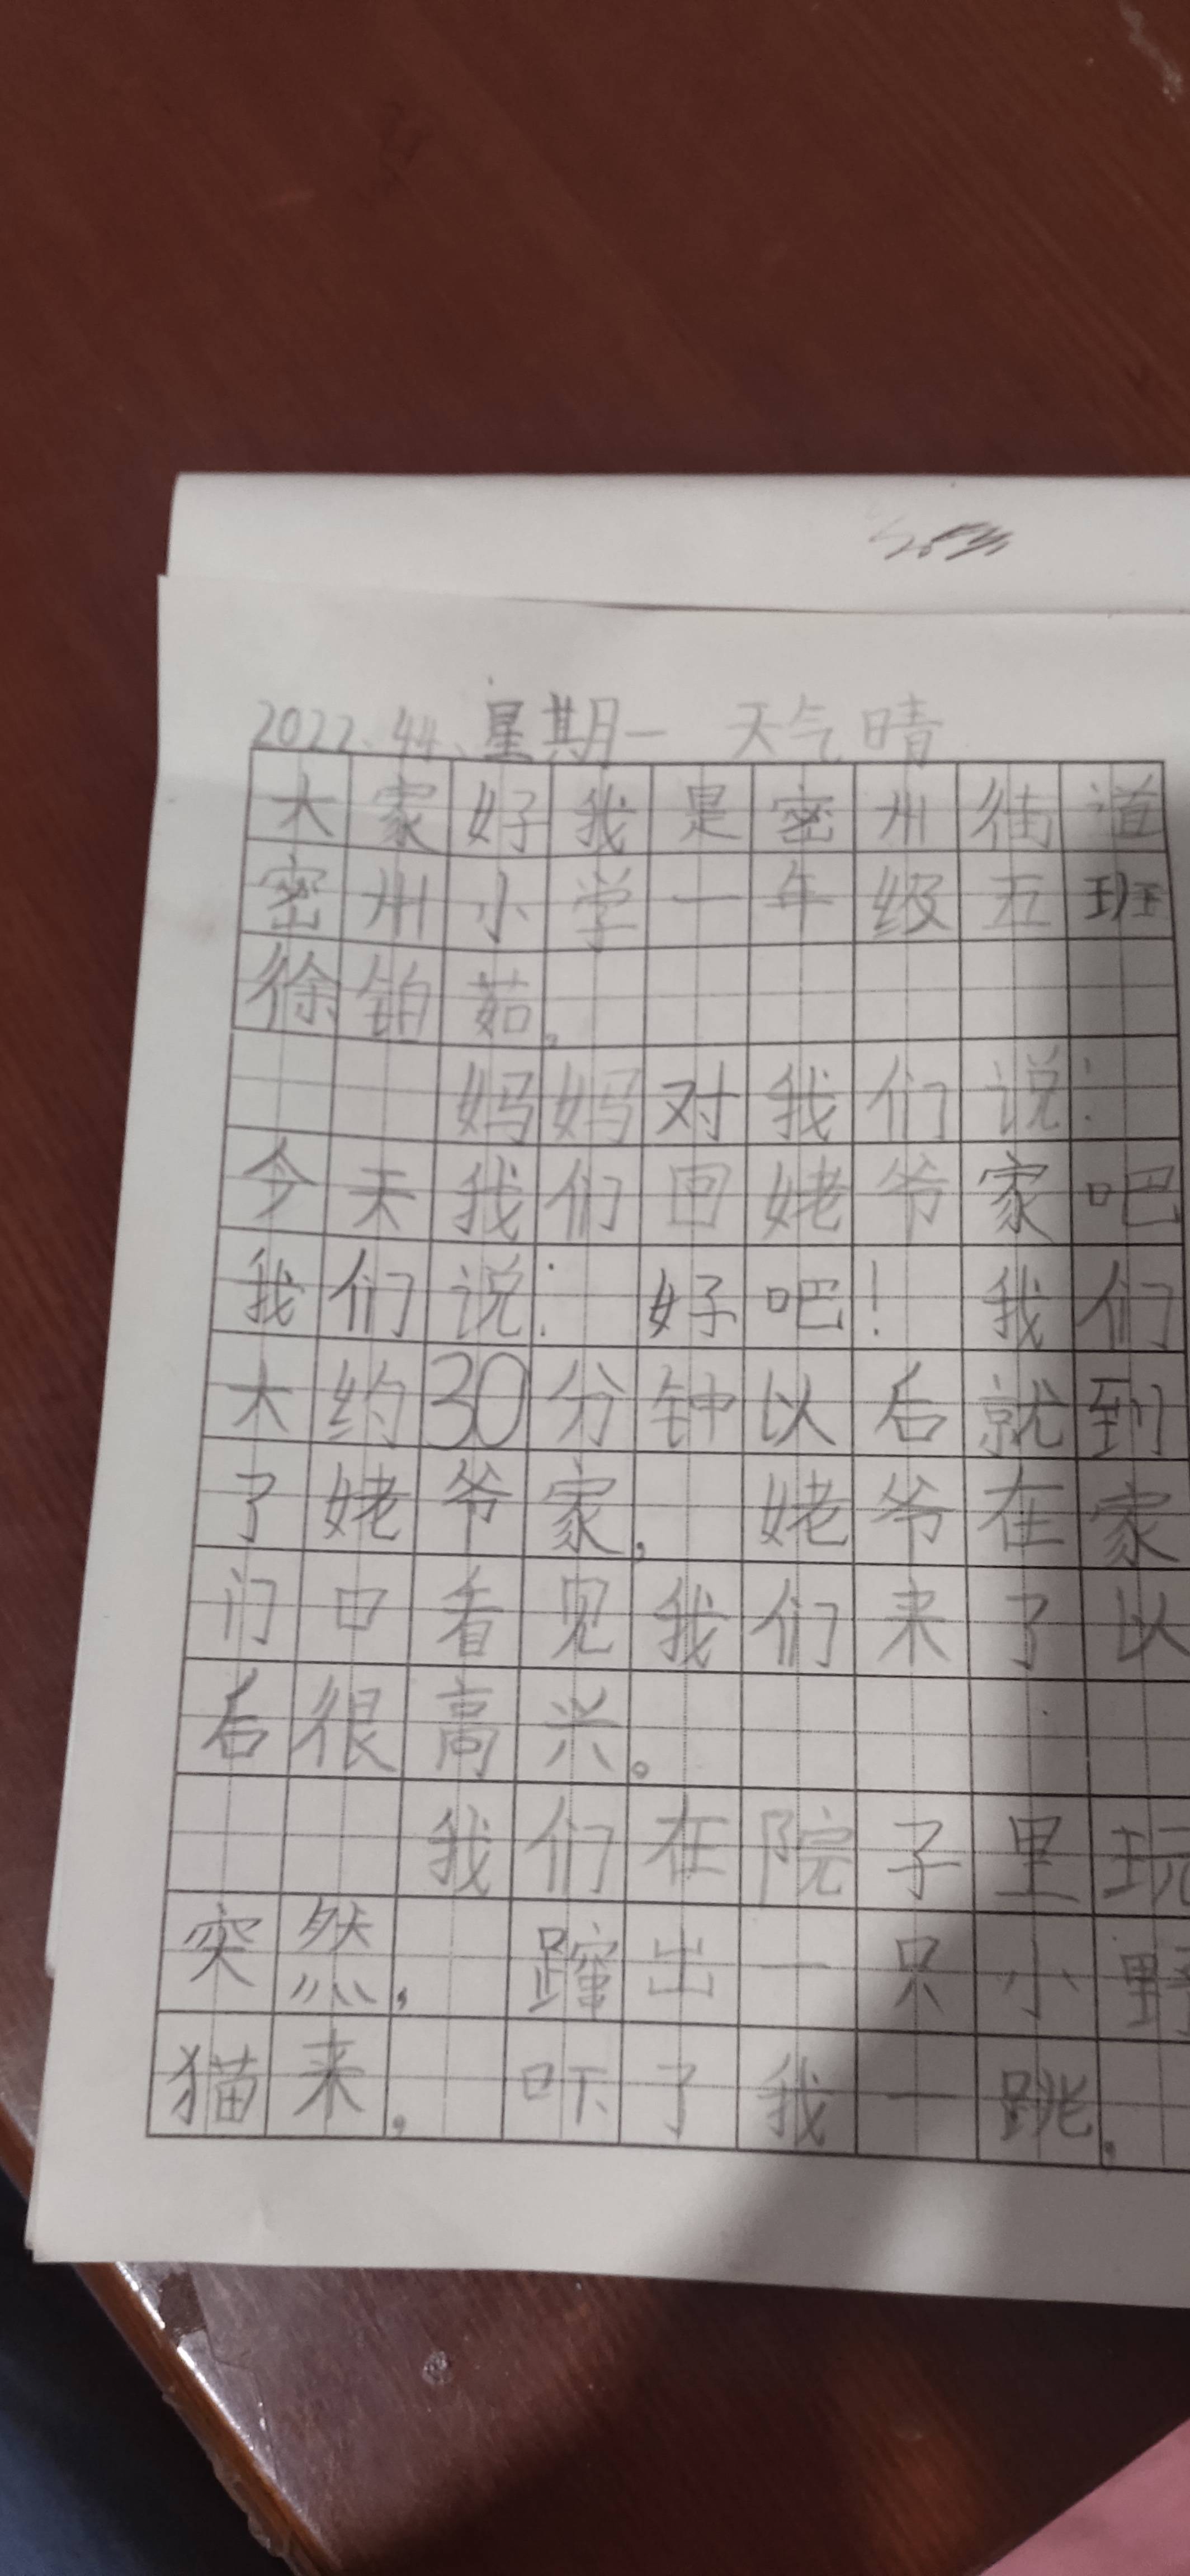 2022.4.4、星期一 天气晴
大家好我是密州街道
密州小学一年级五班
徐铂茹。
妈妈对我们说：
今天我们回姥爷家吧
我们说：好吧！我们
大约30分钟以后就到
了姥爷家，姥爷在家
门口看见我们来了以
后很高兴。
我们在院子里玩
突然，蹿出一只小野
猫来，吓了我一跳。